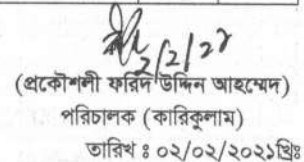 2/2/22
(প্রকৌশলী ফরিদ উদ্দিন আহম্মেদ)
পরিচালক (কারিকুলাম)
তারিখ ঃ ০২/০২/২০২১খ্রিঃ